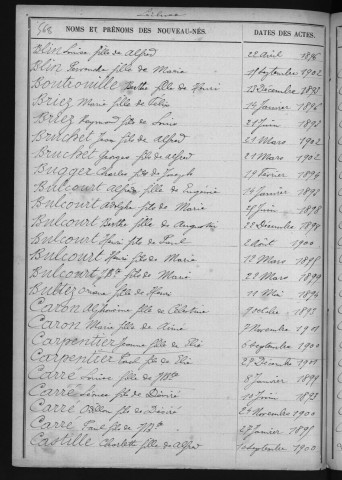 568
NOMS ET PRÉNOMS DES NOUVEAU-NÉS. DATES DES ACTES.
Blin Louise fille de Alfred 22 Avril 1896
Blin fille de Marie 1902
Bontrouille Berthe fille de Henri 13 Décembre 1893
Briez Marie fille de Félix 14 Janvier 1896
Briez Raymond fils de Louis 21 Juin 1895
Bruchet Jean fils de Alfred 21 Mars 1902
Bruchet Georges fils de Alfred 21 Mars 1902
Bugger Charles fils de Joseph 19 Février 1896
Bulcourt fille de Eugénie 14 Janvier 1893
Bulcourt Adolphe fils de Marie Juin 1898
Bulcourt Berthe fille de Augustin 28 Décembre 1898
Bulcourt Henri fils de Paul 2 Août 1900
Bulcourt Henri fils de Marie 12 Mars 1895
Bulcourt fils de Marie 21 Mars 1899
Bultez fille de Henri 11 Mai 1894
Caron Alphonsine fille de Célestine 9 1893
Caron Marie fille de Aimé 7 Novembre 1901
Carpentier Jeanne fille de Elie 6 Septembre 1900
Carpentier Paul fils de Elie 29 Décembre 1901
Carré Louise fille de 8 Janvier 1895
Carré Louise fille de Désiré 10 Juin 1893
Carré Odilon fils de Désiré 24 Novembre 1900
Carré Paul fils de 27 Janvier 1895
Castille Charlotte fille de Alfred Septembre 1900